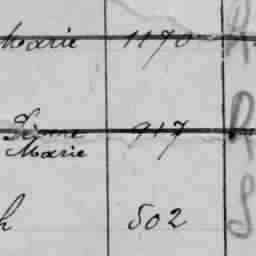 Marie 1170 R
Marie 917 R
h 502 S